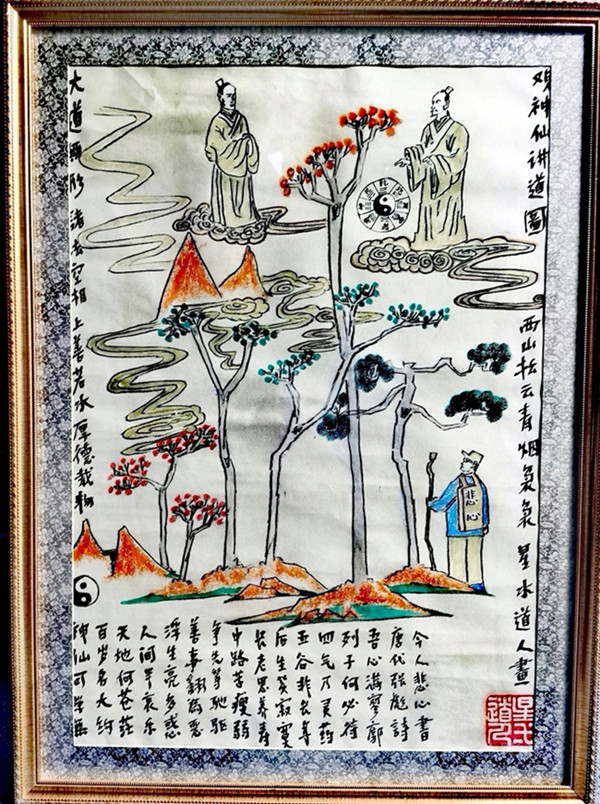 观神仙讲道圖
西山松云青烟袅袅 星水道人畫
大道無形 諸法空相 上善若水 厚德载物
悲心
神仙可学無
百岁名大约
天地何苍茫
人间半哀乐
浮生亮多惑
善事翻为恶
争先等驰驱
中路苦瘦弱
长老思养寿
后生笑寂寞
五谷非长年
四气乃灵药
列子何必待
吾心满寥廓
唐代張彪詩
今人悲心書